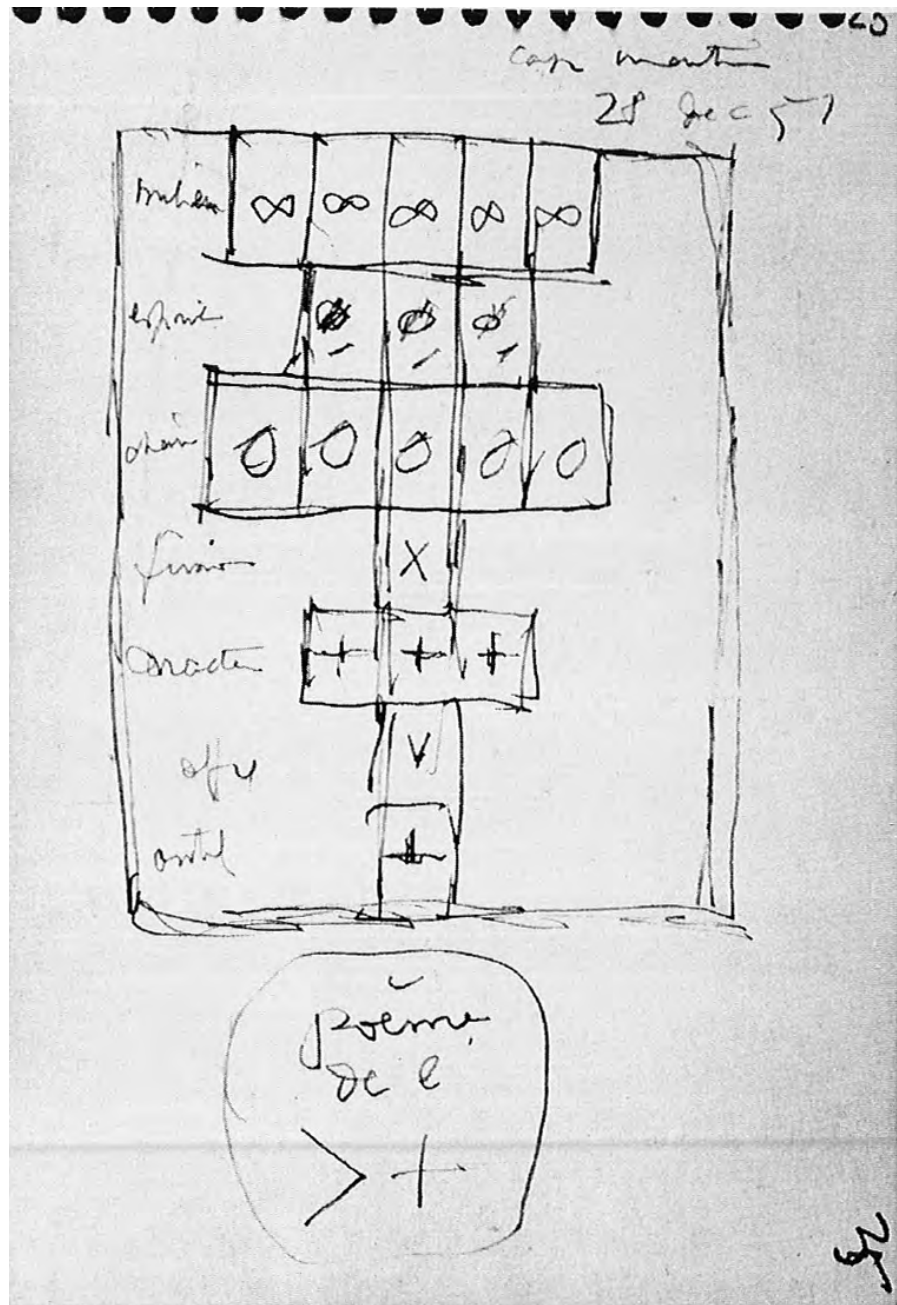 20
cap martin
28 dec 51
milieu ∞ ∞ ∞ ∞ ∞
esprit ø ø ø
chair O O O O O
fusion X
caractère + + +
offre V
outil +
poème
de l'
> +